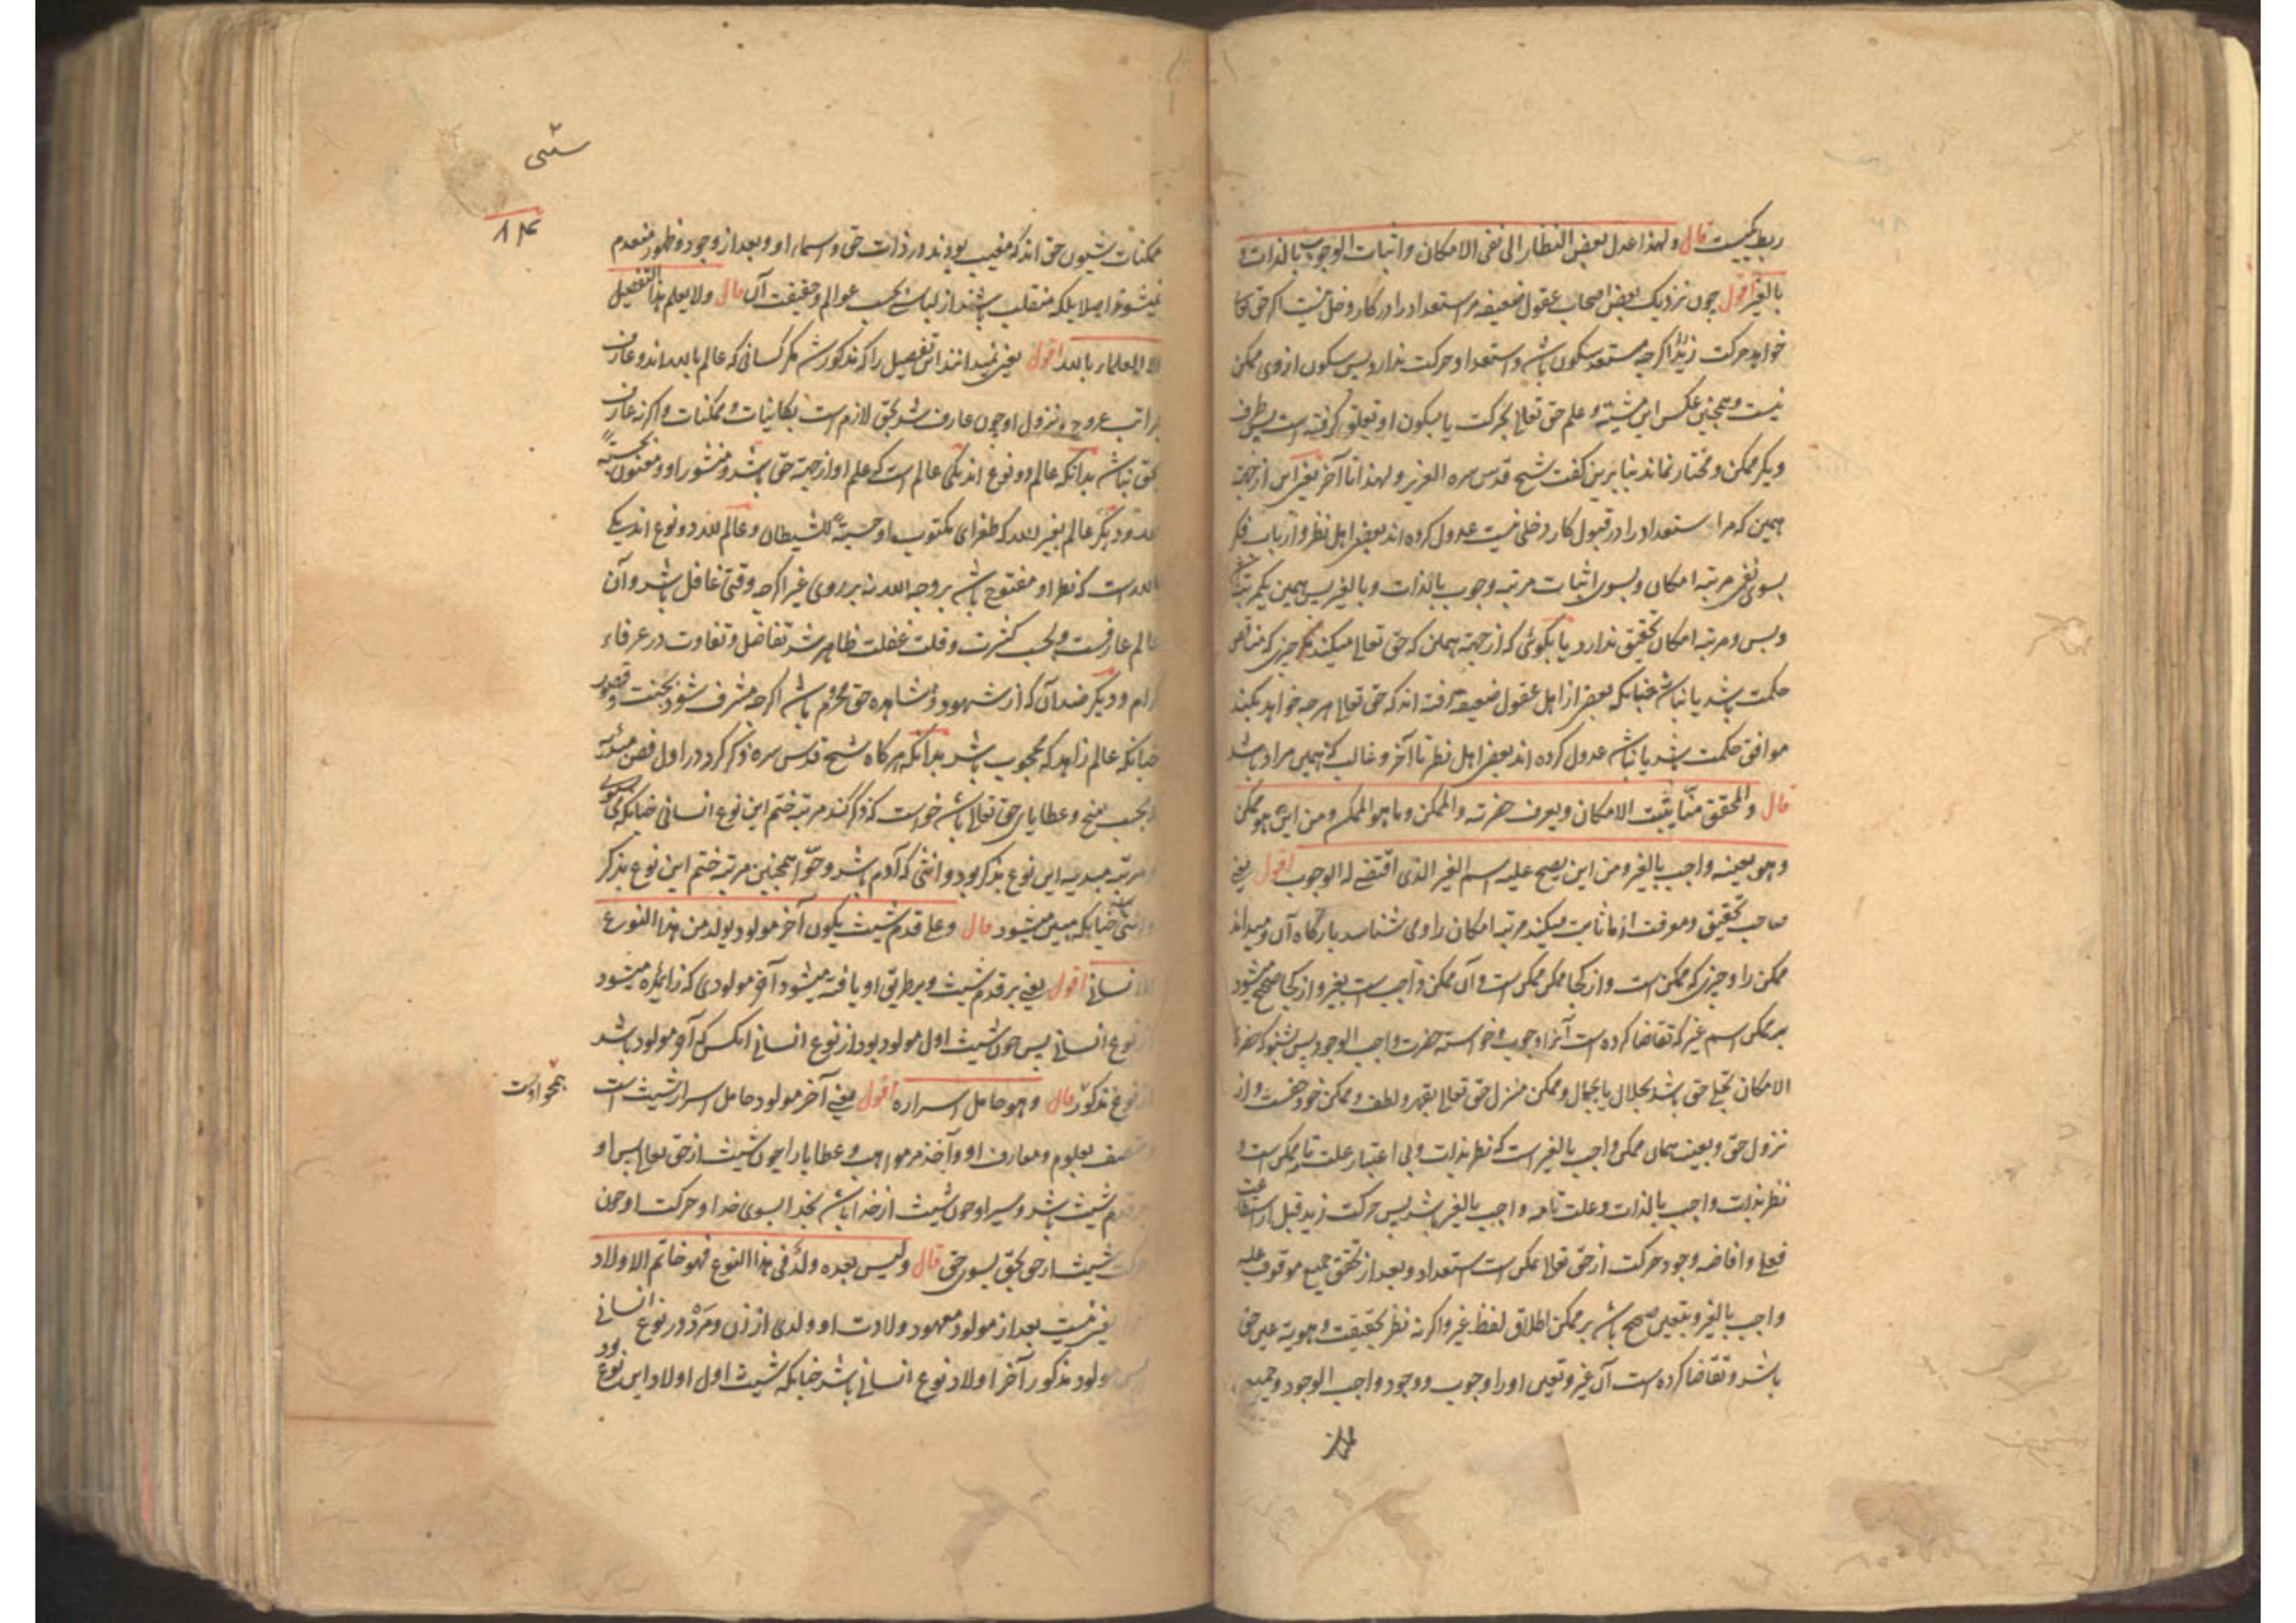 ربط نیست قال ولهذا عدل بعض النظار الی نفی الامکان واثبات الوجوب بالذات و
بالغیر اقول چون نزدیک بعض اصحاب عقول ضعیفه مر استعداد را در کار دخلی نیست اگر حق تعالی
خواهد حرکت زید را اگرچه مستعد سکون باشد و استعداد حرکت ندارد پس سکون از وی ممکن
نیست و همچنین عکس این مشیته و علم حق تعالی بحرکت یا بسکون او تعلق گرفته است پس طرف
دیگر ممکن و مختار نماند بنا برین گفت شیخ قدس سره العزیز ولهذا تا آخر یعنی این از جهة
همین که مر استعداد را در قبول کار دخلی نیست عدول کرده اند بعض اهل نظر و ارباب فکر
بسوی نفی مرتبه امکان و بسوی اثبات مرتبه وجوب بالذات و بالغیر پس همین یک مرتبه
و بس و مرتبه امکان تحقیق ندارد یا بگوئی که از جهة همین که حق تعالی میکند هر چیزی که مناقض
حکمت باشد یا نباشد چنانکه بعض از اهل عقول ضعیفه رفته اند که حق تعالی هر چه خواهد بکند
موافق حکمت باشد یا نباشد عدول کرده اند بعض اهل نظر تا آخر و غالب که همین مراد باشد
قال والمحقق منا یثبت الامکان ویعرف حضرته والممکن وما هو الممکن ومن این هو ممکن
وهو بعینه واجب بالغیر ومن این یصح علیه اسم الغیر الذی اقتضی له الوجوب اقول یعنی
صاحب تحقیق و معرفت از ما ثابت میکند مرتبه امکان را و می شناسد بارگاه آن و میداند
ممکن را و چیزی که ممکن است و از کجا ممکن ممکن است و آن ممکن واجب است بغیر و از کجا صحیح میشود
بر ممکن اسم غیر که تقاضا کرده است آنرا وجوب و خواسته حضرت واجب الوجود پس بشنو که حضرت
الامکان تجلی حق باشد بجلال یا بجمال و ممکن منزل حق تعالی بقهر و لطف و ممکن خود هست و از
نزول حق و بعینه همان ممکن واجب بالغیر است که نظر بذات و بی اعتبار علت تامه ممکن است و
نظر بذات واجب بالذات و علت تامه واجب بالغیر باشد پس حرکت زید قبل از استطاعت
فعلی و افاضه وجود حرکت از حق تعالی ممکن است استعداد و بعد از تحقق جمیع موقوف علیه
واجب بالغیر و بتعین صحیح باشد بر ممکن اطلاق لفظ غیر و اگر نه نظر بحقیقت و هویة عین حق
باشد و تقاضا کرده است آن غیر و تعین او را وجوب و وجود واجب الوجود و جمیع
شیثی
۸۴
ممکنات شیون حق اند که مغیب بودند در ذات حق و اسماء او و بعد از وجود و ظهور منعدم
نمیشوند اصلا بلکه منقلب باشند از لباسی بحسب عوالم و حقیقت آن قال ولا یعلم هذا التفصیل
الا العلماء بالله اقول یعنی نمیدانند این تفصیل را که مذکور شد مگر کسانی که عالم بالله اند و عارف
مراتب عروج و نزول او چون عارف شد بحق لازم است بکاینات و ممکنات و اگر نه عارف
بحق نباشد بدانکه عالم دو نوع اند یکی عالم است که علم او از جهة حق باشد و منشور او معنون
لله و دیگر عالم بغیر الله که طغرای مکتوب او للشیطان و عالم لله دو نوع اند یکی
بالله است که نظر او مفتوح باشد بر وجه الله نه بر روی غیر اگرچه وقتی غافل باشد و آن
عالم عارفست و بحسب کثرت و قلت غفلت ظاهر شد تفاضل و تفاوت در عرفاء
کرام و دیگر ضد آن که از شهود و مشاهده حق محروم باشد اگرچه مشرف شود بجنت و قصور
چنانکه عالم زاهد که محجوب باشد بدانکه هرگاه شیخ قدس سره ذکر کرد در اول فص مبدئیه
بحسب منح و عطایای حق تعالی باشد خواست که ذکر کند مرتبه ختم این نوع انسانی چنانکه
مرتبه مبدئیه این نوع بذکر بود و انثی که آدم باشد و حوا همچنین مرتبه ختم این نوع بذکر
و انثی چنانکه مبین میشود قال وعلی قدم شیث یکون آخر مولود یولد من هذا النوع
الانسانی اقول یعنی بر قدم شیث و بر طریق او یافته میشود آخر مولودی که زائیده میشود
از نوع انسانی پس چون شیث اول مولود بود از نوع انسانی انکس که آخر مولود باشد
از نوع مذکور قال وهو حامل اسراره اقول یعنی آخر مولود حامل اسرار شیث است
همچو اوست
و متصف بعلوم و معارف او و آخذ مر مواهب و عطایا را چون شیث از حق تعالی پس او
بر قدم شیث باشد و سیر او چون شیث از خدا باشد بخدا بسوی خدا و حرکت او چون
حرکت شیث از حق بحق بسوی حق قال ولیس بعده ولد فی هذا النوع فهو خاتم الاولاد
یعنی نیست بعد از مولود معهود ولادت او ولدی از زن و مرد در نوع انسانی
پس مولود مذکور آخر اولاد نوع انسانی باشد چنانکه شیث اول اولاد این نوع بود